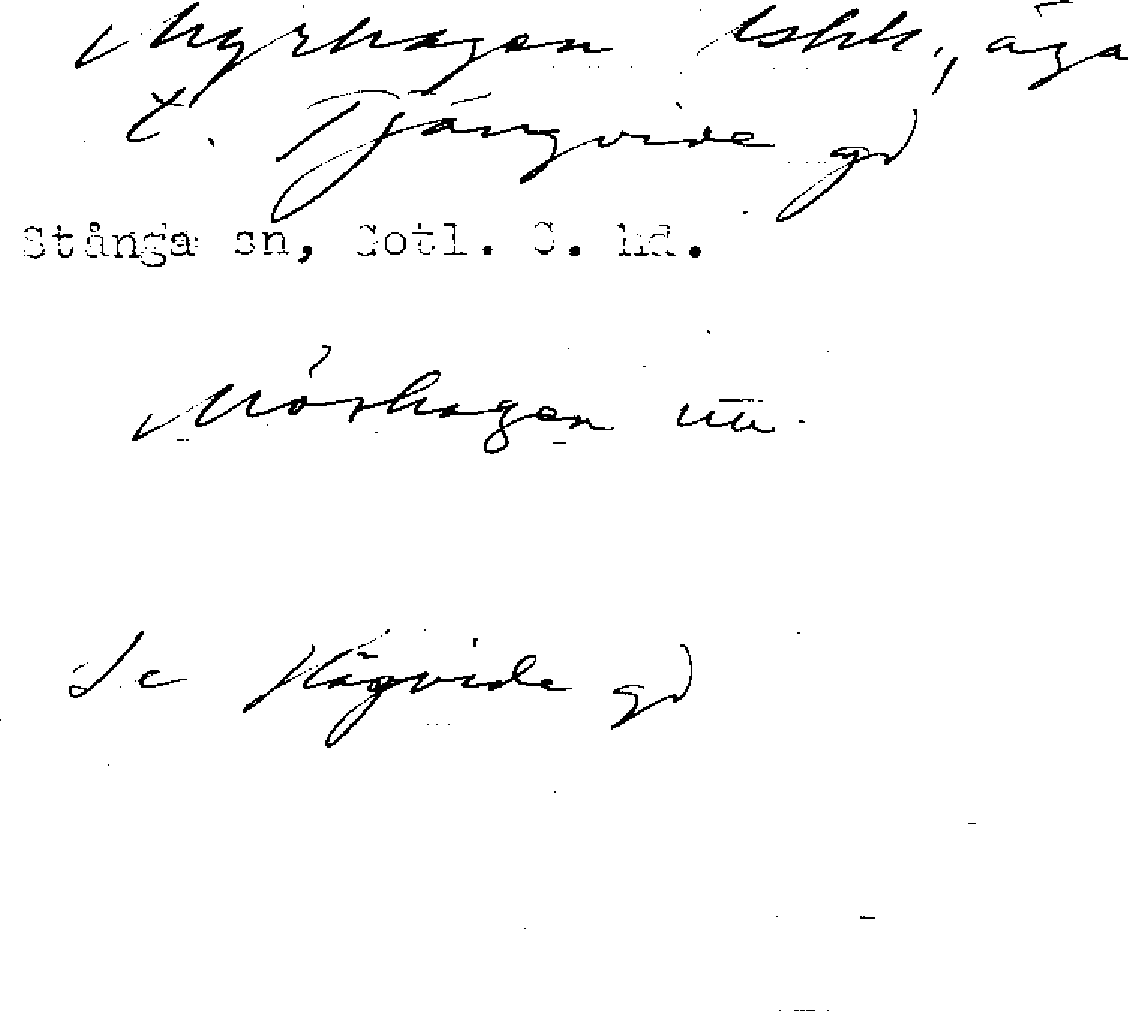 Myrhagen tshk., äga
t. Tjängvide gd
Stånga sn, Gotl. S. hd.
Mörhagen utt.
Se Hägvide gd